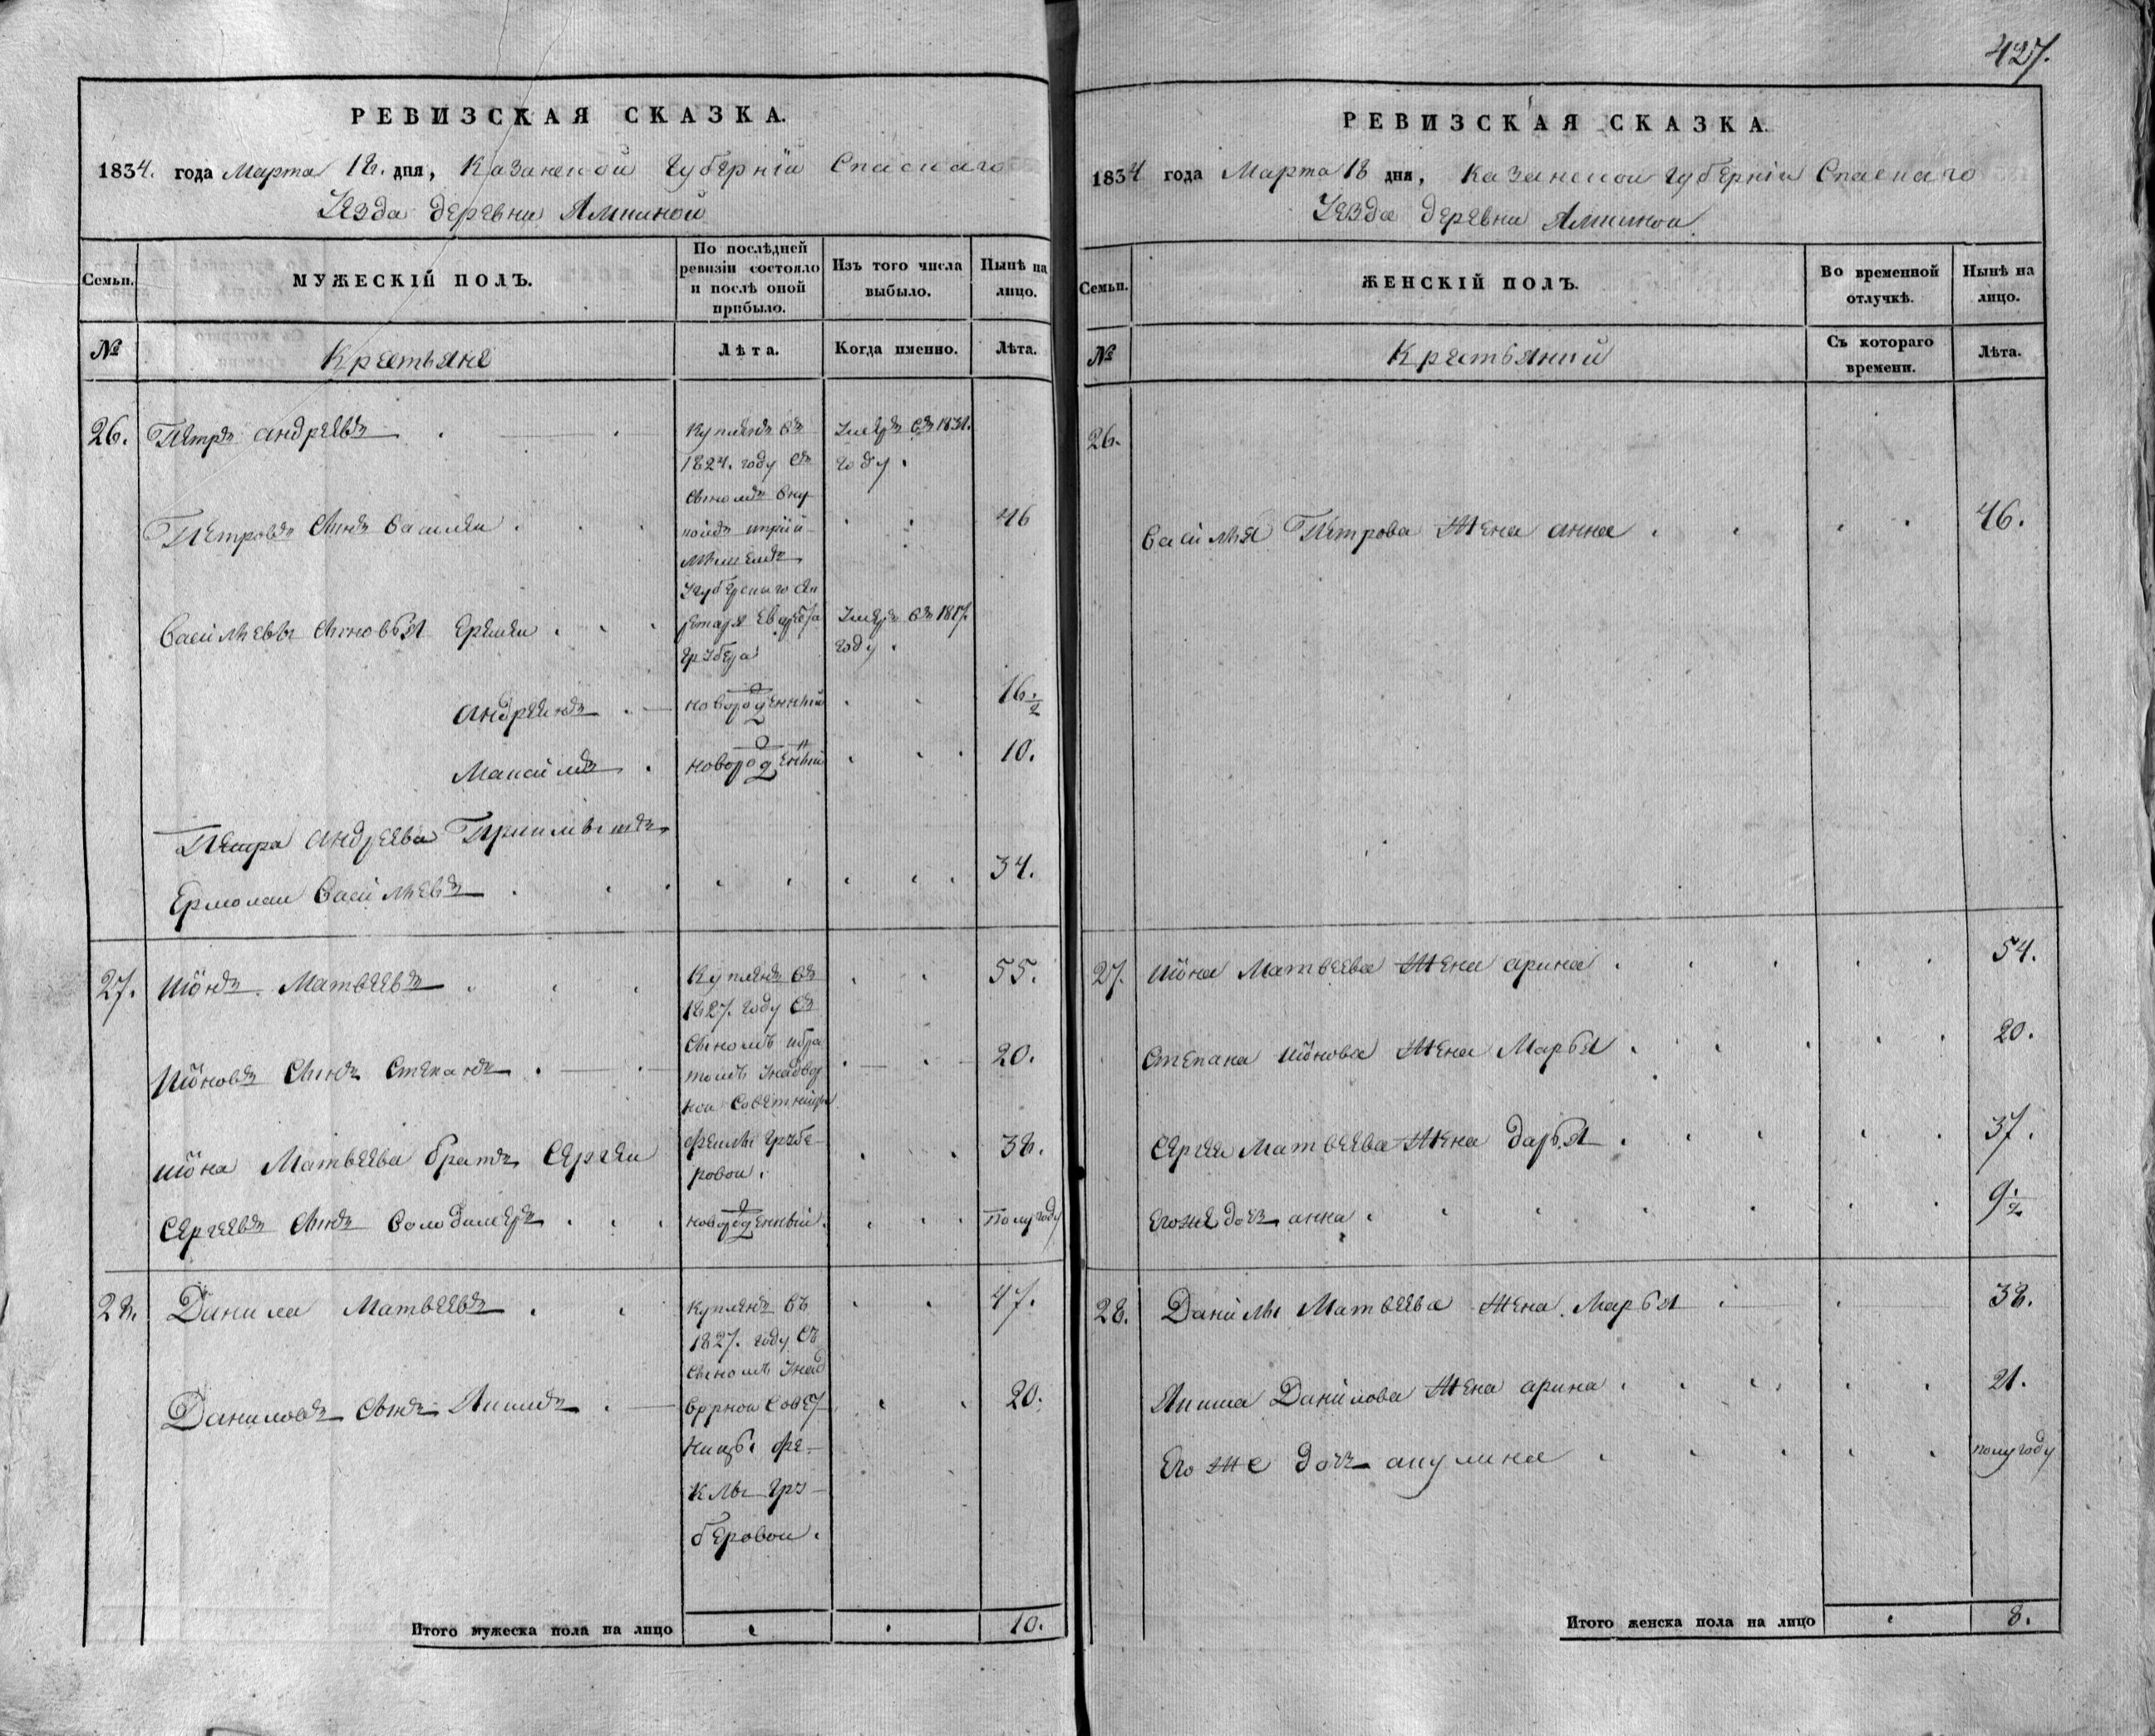 427.
РЕВИЗСКАЯ СКАЗКА.
1834. года Марта 18. дня, Казанской губерніи Спаскаго
Уезда деревни
Семьи.
МУЖЕСКІЙ ПОЛЪ.
По послѣдней
ревизіи состояло
и послѣ оной
прибыло.
Изъ того числа
выбыло.
Нынѣ на
лицо.
№
Крестьяне
Лѣта.
Когда именно.
Лѣта.
26.
Петръ андреевъ
Купленъ въ
1824. году съ
сыномъ вну
комъ
Умеръ въ 1831.
году.
Петровъ сынъ василеи
46
Васильевы сыновья еремеи
Умеръ въ 1817.
году.
андреянъ
новорожденный
16. ½
Максимъ
новорожденный
10.
Петра андреева Приимышъ
Ермолаи Васильевъ
34.
27.
Иіонъ Матвеевъ
Купленъ въ
1827. году съ
сыномъ ибра
томъ Унадвор
нои Советницы
Феклы Грубе
ровои.
55.
Иіоновъ сынъ степанъ
20.
Иіона Матвеева братъ Сергеи
38.
Сергеевъ сынъ Володимеръ
новорожденный.
полугоду
28.
Данила Матвеевъ
Купленъ въ
1827. году съ
сыномъ Унад
ворнои Совет
ницы Фе
клы Гру
беровои.
47.
Даниловъ сынъ Якимъ
20.
Итого мужеска пола на лицо
10.
РЕВИЗСКАЯ СКАЗКА.
1834 года Марта 18 дня, Казанской губерніи Спаскаго
Уезда деревни
Семьи.
ЖЕНСКІЙ ПОЛЪ.
Во временной
отлучкѣ.
Нынѣ на
лицо.
№
Крестьянки
Съ котораго
времени.
Лѣта.
26.
Василья Петрова Жена анна
46.
27.
Иіона Матвеева Жена арина
54.
Степана Иіонова Жена Марья
20.
Сергея Матвеева Жена дарья
37.
Егоже дочь анна
9. ½
28.
Данилы Матвеева Жена Марья
38.
Якима Данилова Жена арина
21.
Егоже дочь акулина
полугоду
Итого женска пола на лицо
8.